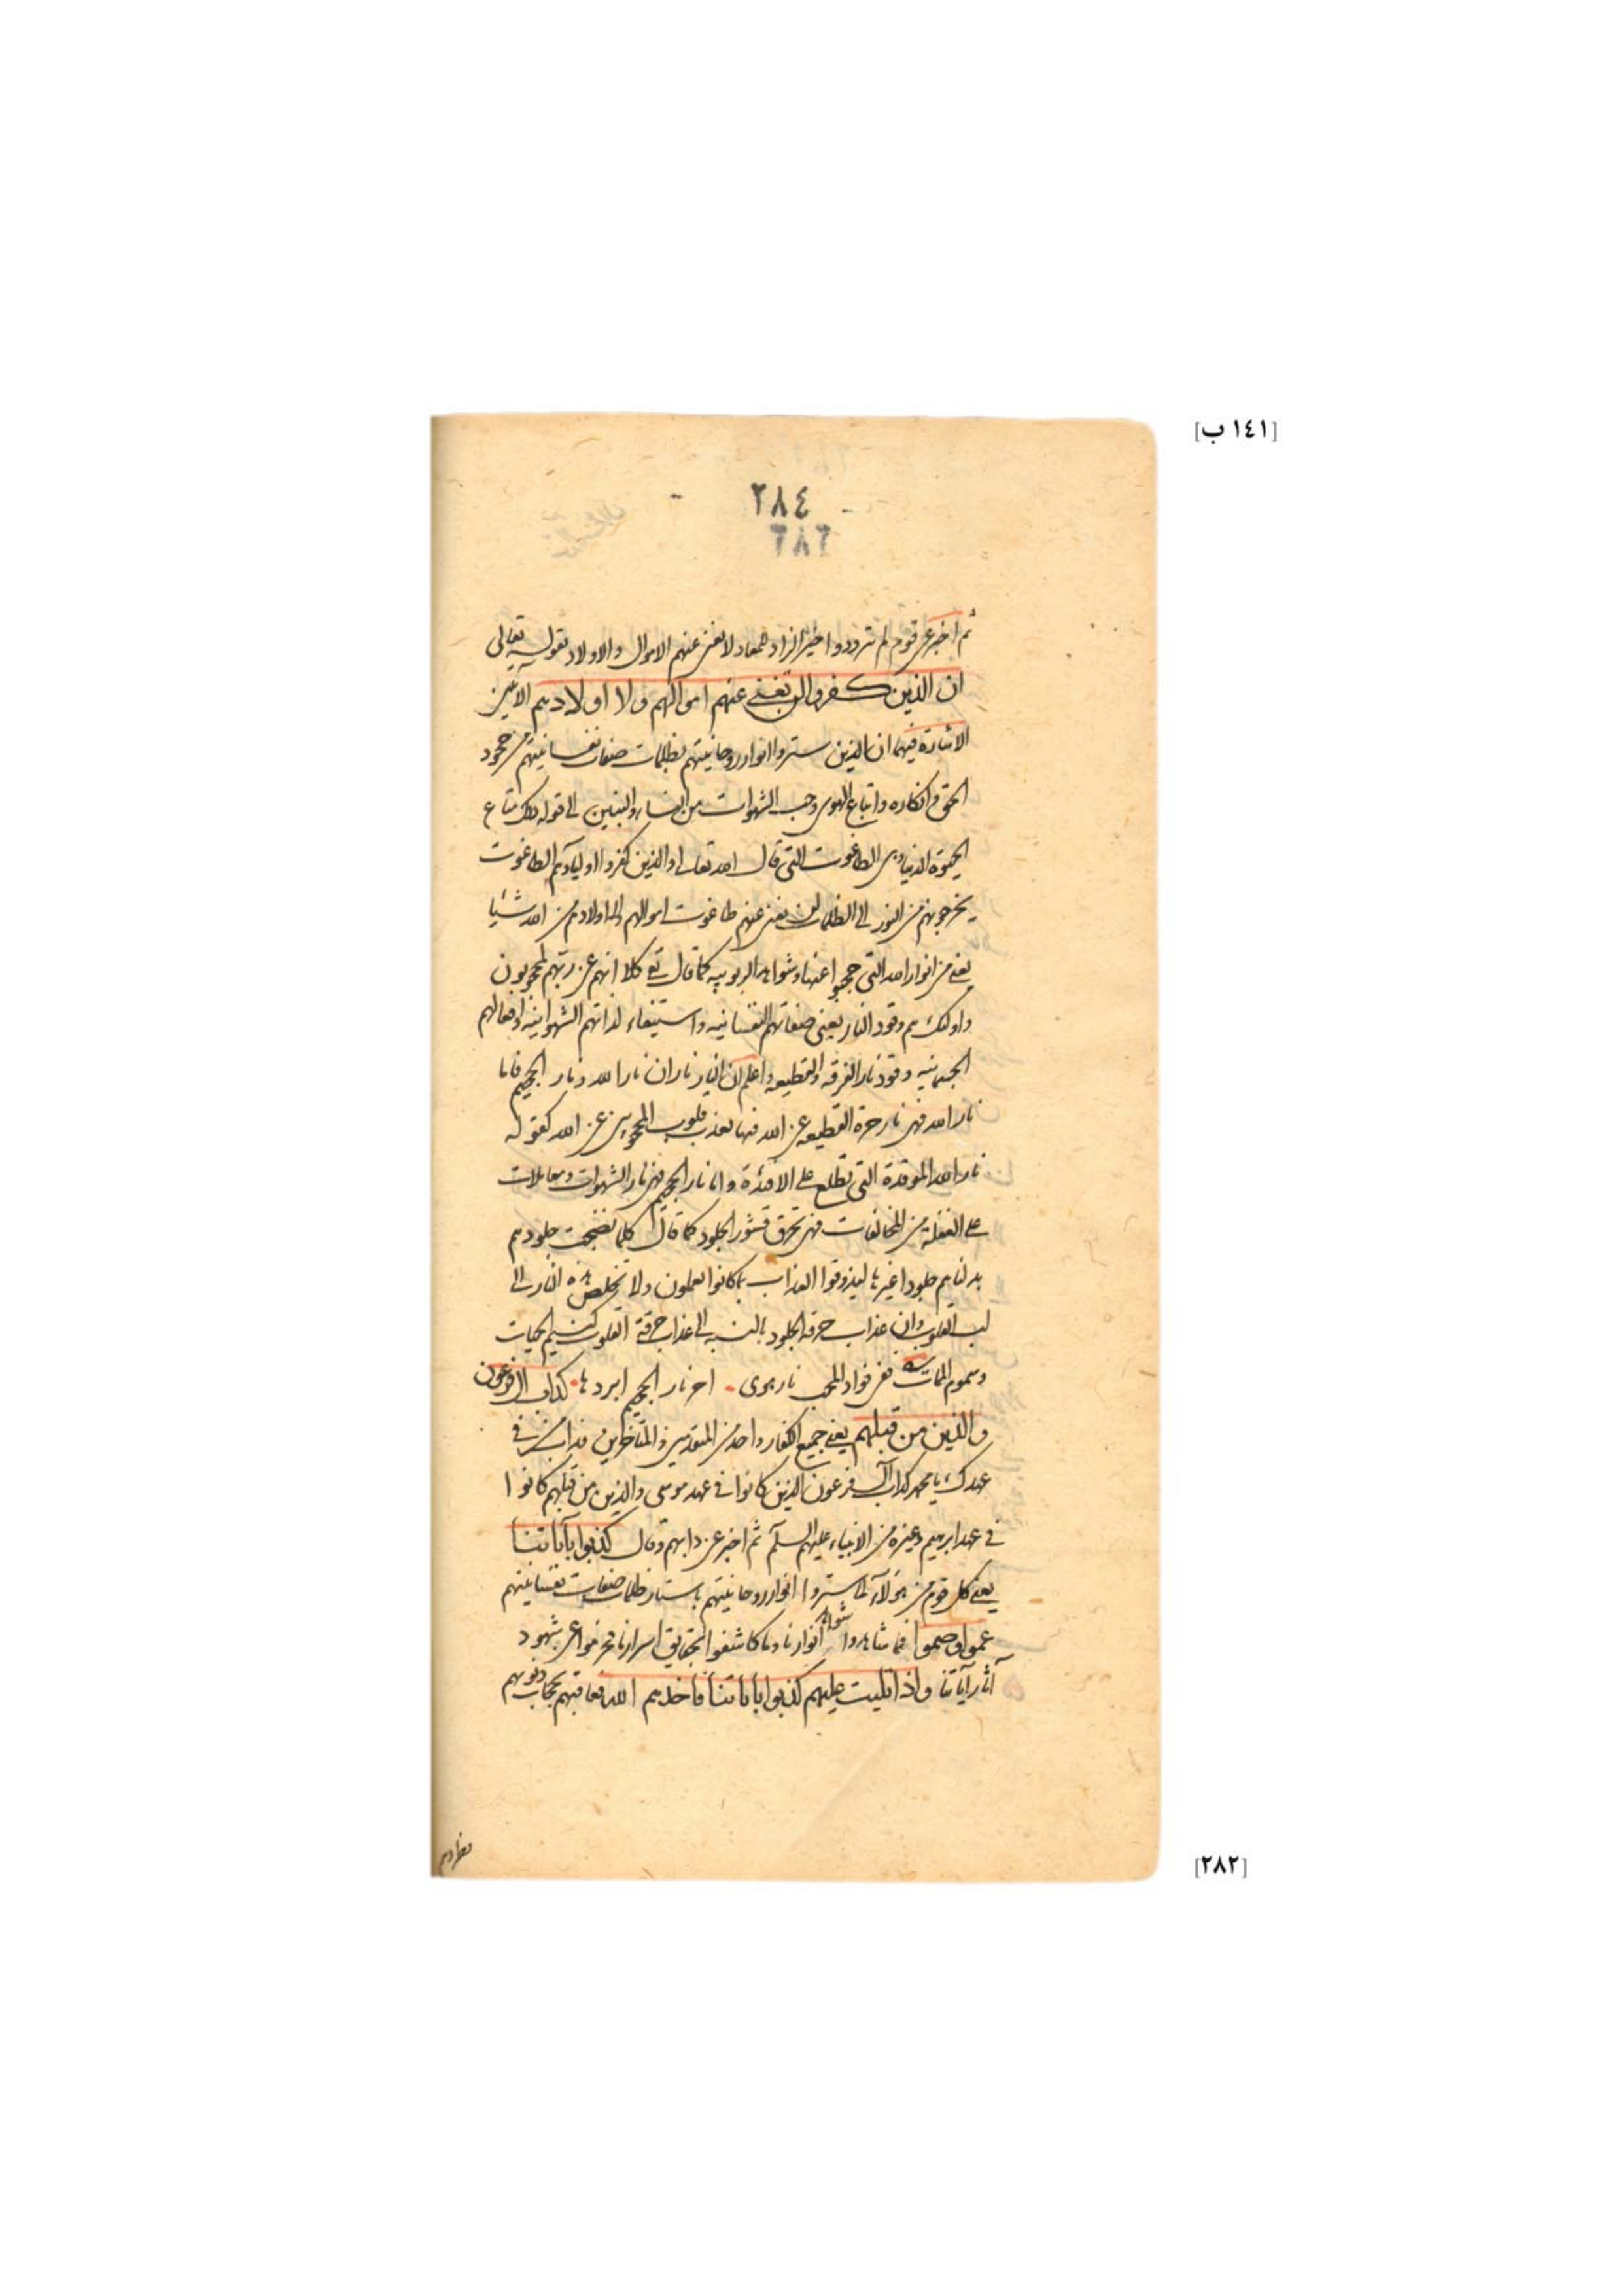 [١٤١ ب]
٢٨٤
ثم اخبر عن قوم لم تزودوا خير الزاد للمعاد لا يغنى عنهم الاموال والاولاد بقوله تعالى
ان الذين كفروا لن تغنى عنهم اموالهم ولا اولادهم الآيتين
الاشارة فيهما ان الذين ستروا انوار روحانيتهم بظلمات صفات نفسانيتهم من جحود
الحق وانكاره واتباع الهوى وحب الشهوات من النساء والبنين الى قوله ذلك متاع
الحيوة الدنيا وهى الطاغوت التى قال الله تعالى والذين كفروا اولياؤهم الطاغوت
يخرجونهم من النور الى الظلمات لن يغنى عنهم طاغوت اموالهم ولا اولادهم من الله شيئا
يعنى من انوار الله التى حجبوا عنها وشواهد الربوبيه كما قال تع كلا انهم عن ربهم لمحجوبون
واولئك هم وقود النار يعنى صفاتهم النفسانيه واستيفاء لذاتهم الشهوانيه وافعالهم
الجسمانيه وقود نار الفرقه والقطيعه واعلم ان النار ناران نار الله ونار الجحيم فاما
نار الله فهى نار حرقة القطيعه عن الله فيها يعذب قلوب المحجوبين عن الله كقوله
نار الله الموقدة التى تطلع على الافئدة واما نار الجحيم فهى نار الشهوات ومعاملات
على الغفلة من المخالفات فهى تحرق قشور الجلود كما قال كلما نضجت جلودهم
بدلناهم جلودا غيرها ليذوقوا العذاب بما كانوا يعملون ولا تخلص هذه النار الى
لب القلوب وان عذاب حرقة الجلود بالنسبه الى عذاب حرقة القلوب كنسيم الحيات
وسموم الممات شعر ففى فؤاد المحب نار هوى . احر نار الجحيم ابردها . كدأب ال فرعون
والذين من قبلهم يعنى جميع الكفار واحد من المتقدمين والمتأخرين فدأب من فى
عهدك يا محمد كدأب آل فرعون الذين كانوا فى عهد موسى والذين من قبلهم كانوا
فى عهد ابرهيم وغيره من الانبياء عليهم السلم ثم اخبر عن دابهم وقال كذبوا بآياتنا
يعنى كل قوم من هؤلاء لما ستروا انوار روحانيتهم باستار ظلمات صفات نفسانيتهم
عموا وصموا فما شاهدوا شواهد انوارنا وما كاشفوا بحقايق اسرارنا فحرموا عن شهود
آثار آياتنا واذا تليت عليهم كذبوا بآياتنا فاخذهم الله فعاقبهم بحجاب ذنوبهم
[٢٨٢]